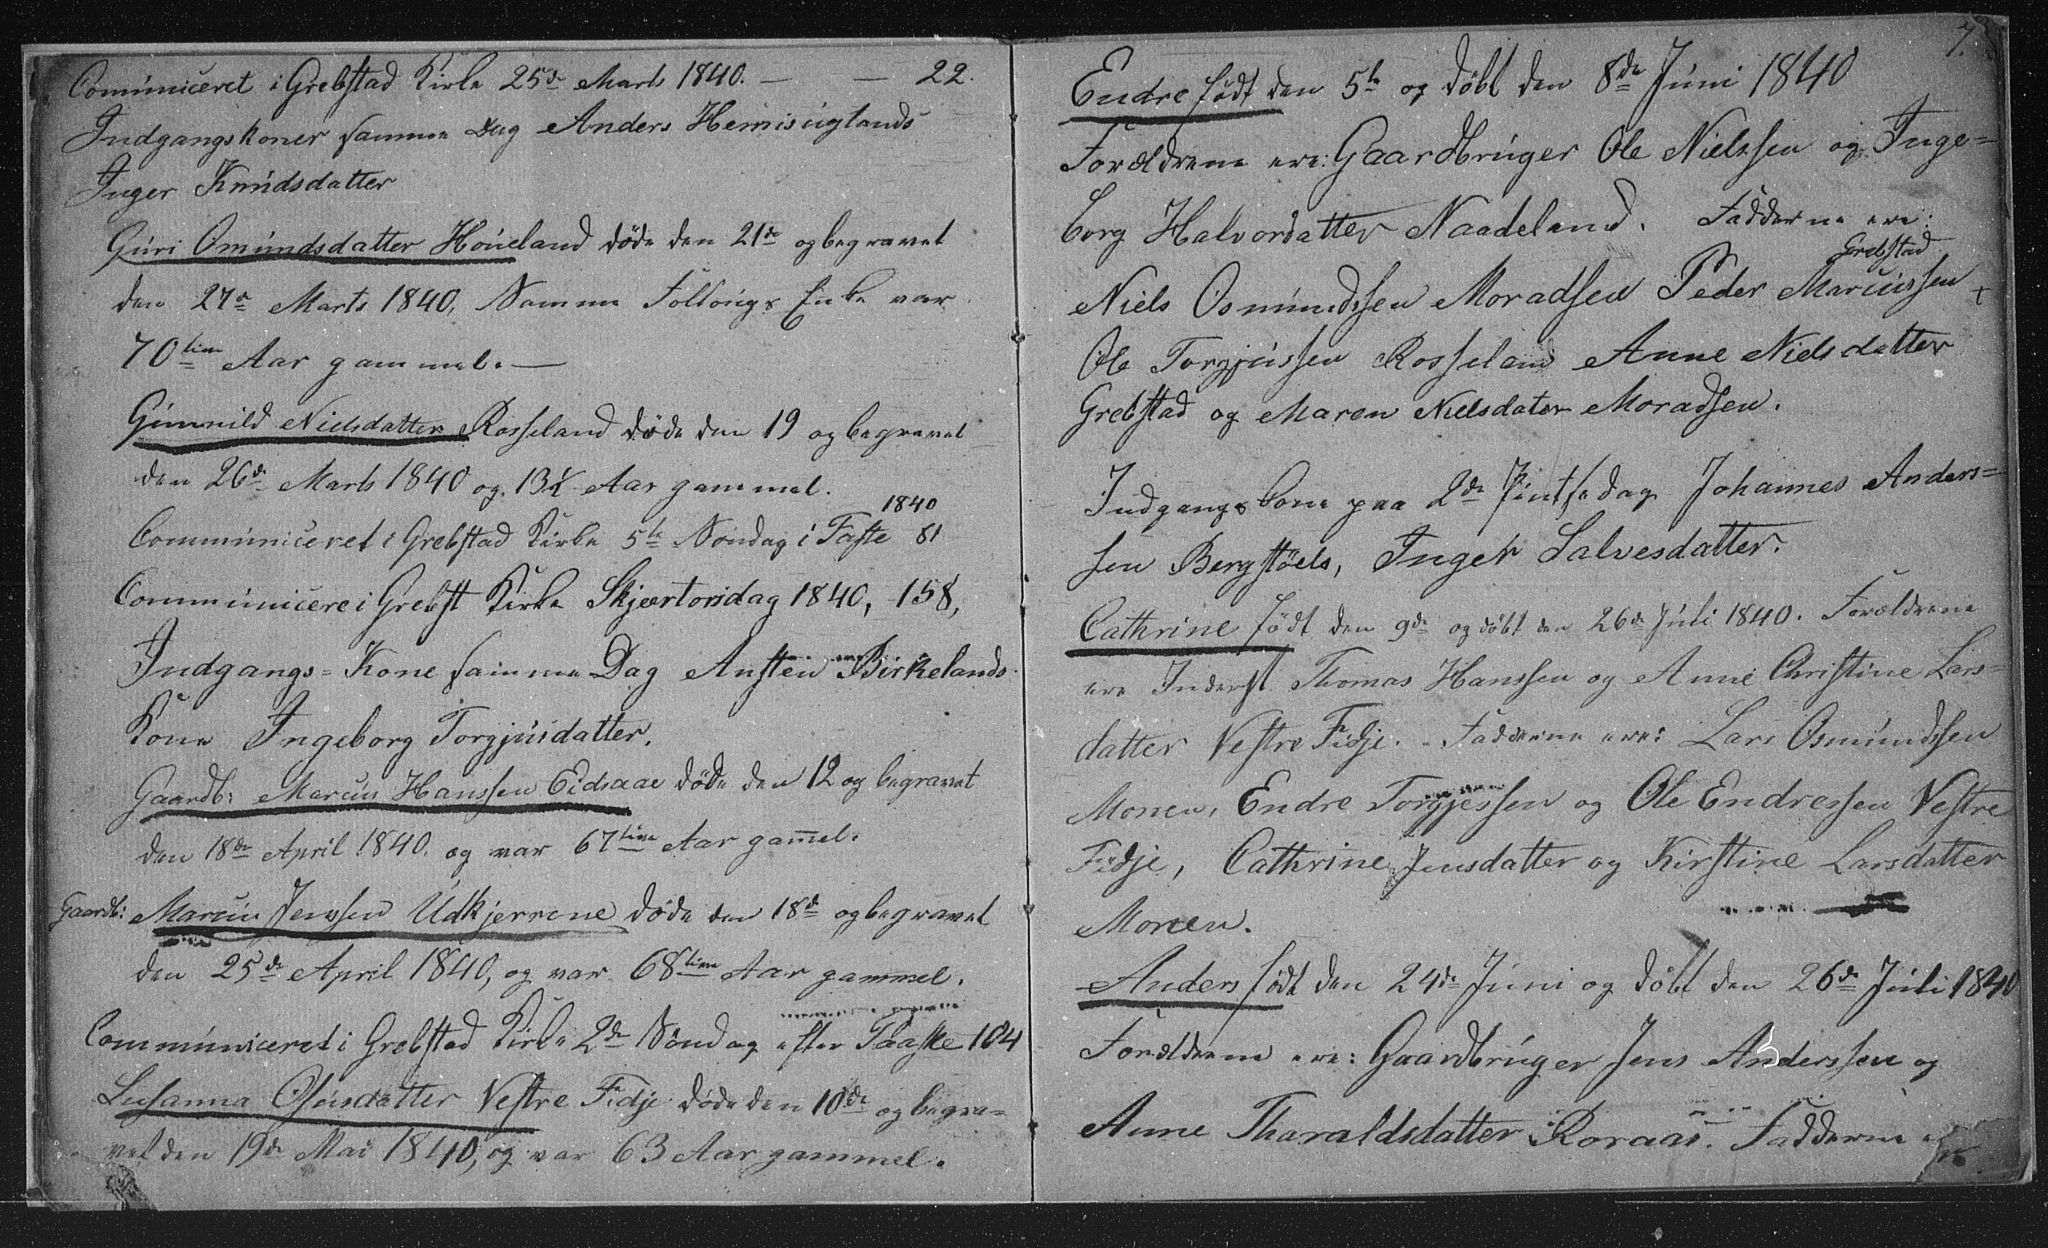 Communiceret i Grebstad Kirke 25de Marts 1840. — — 22.
Indgangskoner samme Dag Anders Hemisuglands
Inger Knudsdatter
Guri Omundsdatter Høueland døde den 21de og begravet
den 27de Marts 1840, Samme Enke var
70tive Aar gammel. —
Gunnild Nielsdatter Rosseland døde den 19 og begravet
den 26de Marts 1840 og 13½ Aar gammel.
1840
Communiceret i Grebstad Kirke 5te Søndag i Faste 81
Communicere i Grebst Kirke Skjærtorsdag 1840, 158,
Indgangs=Kone samme Dag Austen Birkelands
Kone Ingeborg Torgjusdatter.
Gaardb: Marcus Hanssen Eidsaae døde den 12 og begravet
den 18de April 1840. og var 67tive Aar gammel.
Gaardb: Marcus Jenssen Udkjerrene døde den 18de og begravet
den 25de April 1840, og var 68tive Aar gammel.
Communiceret i Grebstad Kirke 2de Søndag efter Paaske 104
Susanna Olsdatter Vestre Fidje døde den 10de og begra=
vet den 19de Mai 1840, og var 63 Aar gammel.
7.
Endre født den 5te og døbt den 8de Juni 1840
Forældrene ere: Gaardbruger Ole Nielssen og Inge=
borg Halvordatter Naadeland. Fadderne ere:
Grebstad
Niels Osmundssen Moradsen Peder Marcussen +
Ole Torgjussen Rosseland Anne Nielsdatter
Grebstad og Maren Nielsdater Moradsen.
Indgangskone paa 2de Pintsedag Johannes Anders=
sen Bergstøels, Inger Salvesdatter.
Cathrine født den 9de og døbt den 26de Juli 1840. Forældrene
ere Inderst Thomas Hanssen og Anne Christine Lars=
datter Vestre Fidje. - Fadderne ere: Lars Osmundssen
Monen, Endre Torgjessen og Ole Endressen Vestre
Fidje, Cathrine Jensdatter og Kirstine Larsdatter
Moneen.
Anders født den 24de Juni og døbt den 26de Juli 1840
Forældrene ere: Gaardbruger Jens Anderssen og
Anne Tharaldsdatter Roraas. Fadderne ere